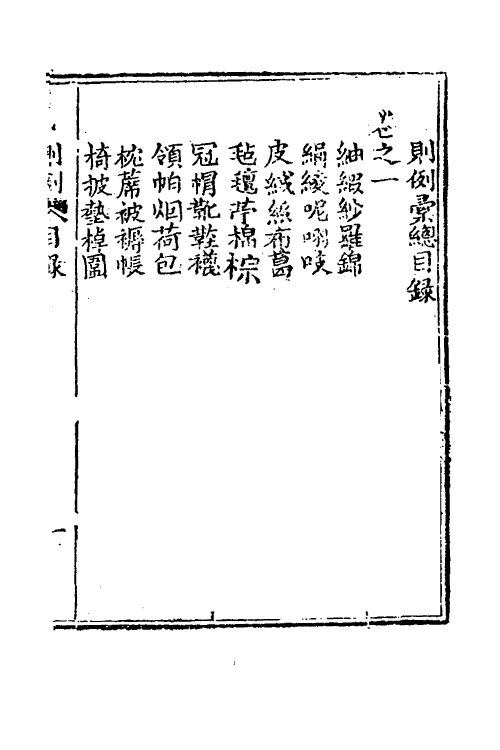 則例彙總目録
卷之一
紬緞紗羅錦
絹綾呢嗶咦
皮絨絲布葛
毡氊苧棉棕
冠帽靴鞋襪
領帕烟荷包
枕蓆被褥帳
椅披墊棹圍
則例 目録
一